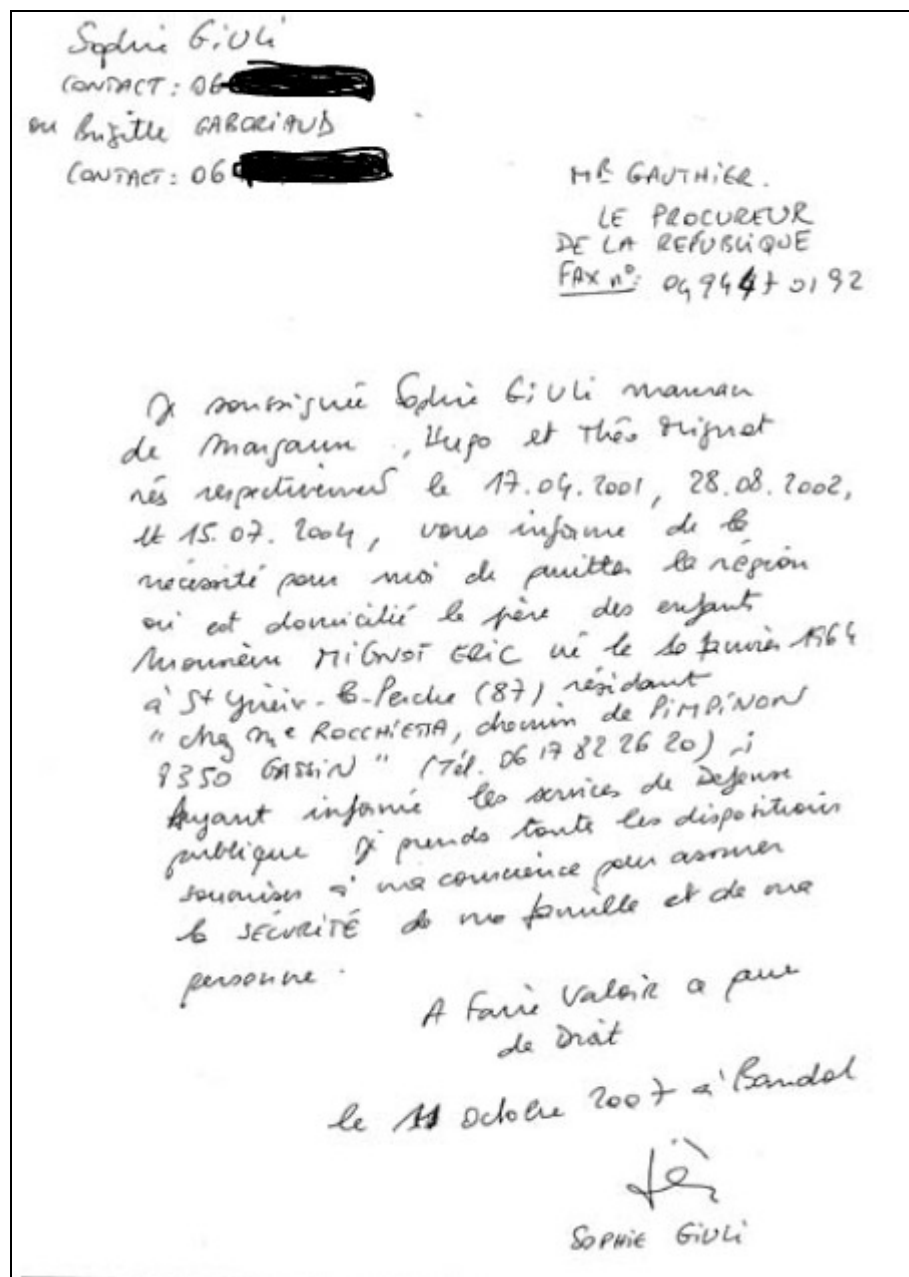 Sophie GiULi
CONTACT : 06
ou Brigitte GABORiAUD
CONTACT : 06
MR GAUTHiER.
LE PROCUREUR
DE LA REPUBLiQUE
FAX n°: 04 94 47 01 92
Je soussignée Sophie GiULi maman
de Margaux, Hugo et Théo Mignot
nés respectivement le 17.04.2001, 28.08.2002,
et 15.07.2004, vous informe de la
nécessité pour moi de quitter la région
où est domicilié le père des enfants
Monsieur MiGNOT ERiC né le 10 Janvier 1964
à St Yrieix-la-Perche (87) résidant
"chez Me ROCCHiETTA, chemin de PiMPiNON
8350 GASSiN" (Tél. 06 17 82 26 20) ;
Ayant informé les services de Defense
publique je prends toute les dispositions
soumises à ma conscience pour assurer
la SÉCURiTÉ de ma famille et de ma
personne.
A Faire Valoir a
de Droit
le 11 octobre 2007 à Bandol
SOPHiE GiULi